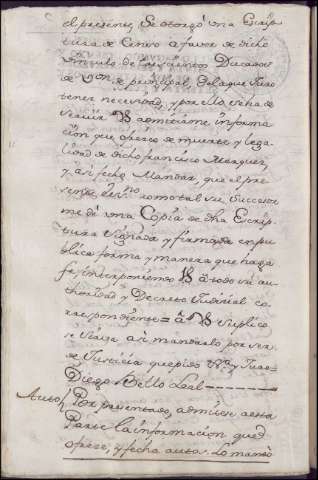 el presente, Se otorgó una Escrip
tura de Censo a favor de dicho
vinculo de Ducados
de von de principal, de la que Juro
tener necesidad, y por ello se ha de
Servir V admitirme informa
ción que ofrezco de muerte y lega
lidad de dicho francisco Marquez
y asi fecho Mandar, que el pre
sente es.no como tal su Succesor
me dé una Copia de dha Escrip
tura Signada y firmada en pu
blica forma y manera que haga
fe, interponiendo V à todo su au
thoridad y Decreto Judicial co
rrespondiente = à V Suplico
se Sirva asi mandarlo por ser
de Justicia que pido Juro
Diego Bello Leal
Auto Por presentado, admitese a esta
Parte la informacion que
ofrece, y fecha autos. Lo mandó